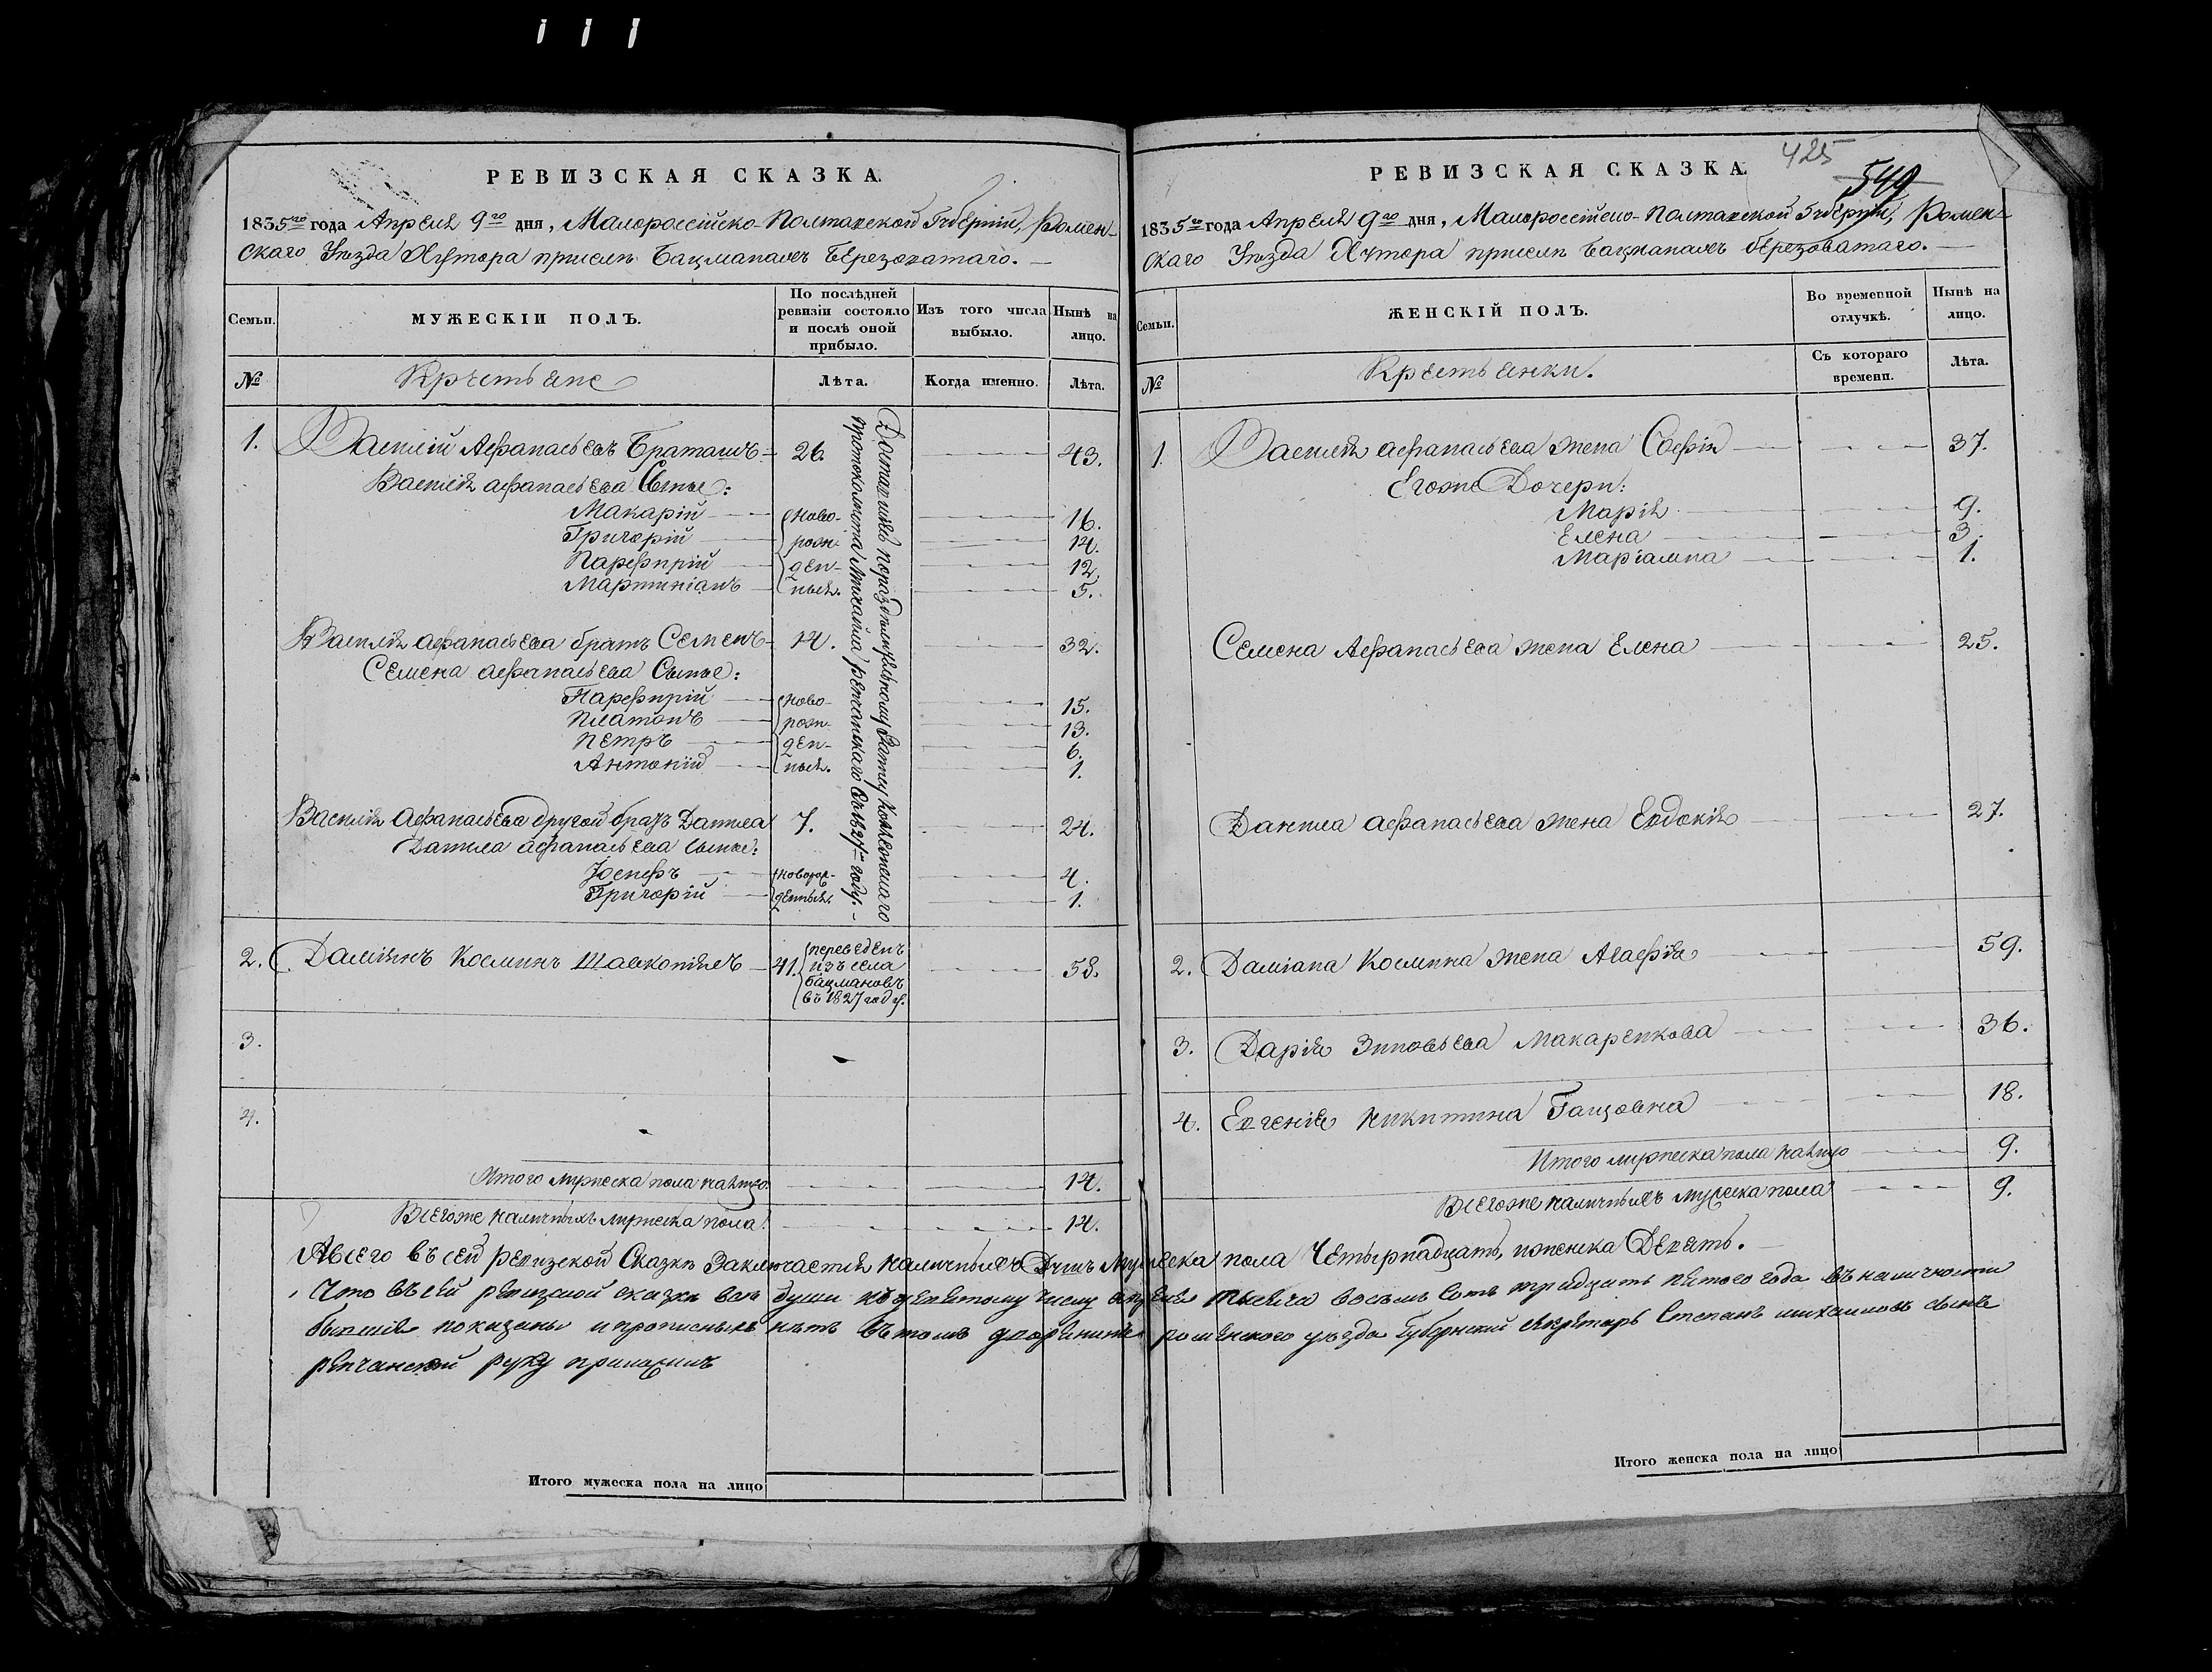 РЕВИЗСКАЯ СКАЗКА.
1835го года Апреля 9го дня, Малороссійско-Полтавской Губерніи, Ромен-
скаго Уѣзда Хутора приселѣ Бацмановъ Березоватаго.
Семьи.
МУЖЕСКІЙ ПОЛЪ.
По послѣдней ревизіи состояло и послѣ оной прибыло.
Изъ того числа выбыло.
Нынѣ на лицо.
№
Крестьяне
Лѣта.
Когда именно.
Лѣта.
1. Василій Афанасьевъ Браташъ 26. 43.
Василія афанасьева Сынье:
Макарій ново- 16.
Григорій рож- 14.
Парфирій ден- 12.
Мартиніанъ ные. 5.
Василія афанасьева братъ Семенъ 14. 32.
Семена афанасьева Сынье:
Парфирій ново- 15.
Платонъ рож- 13.
Петръ ден- 6.
Антоній ные. 1.
Василія Афанасьева другой братъ Данила 7. 24.
Данила афанасьева сынье:
Іосифъ новорож- 4.
Григорій денные. 1.
Достался пораздѣлительному
протокола Михайла Репчанскаго году.
2. Даміянъ Косминъ Шавкопіясъ 41. переведенъ изъ села Бацмановъ въ 1827 году. 58.
3.
4.
Итого мужеска пола налицо 14.
Всегоже наличныхъ мужеска пола 14.
РЕВИЗСКАЯ СКАЗКА.
425
549
1835го года Апреля 9го дня, Малороссійско-Полтавской Губерніи, Ромен-
скаго Уѣзда Хутора приселѣ Бацмановъ березоватаго.
Семьи.
ЖЕНСКІЙ ПОЛЪ.
Во временной отлучкѣ.
Нынѣ на лицо.
№
Крестьянки.
Съ котораго времени.
Лѣта.
1. Василія афанасьева жена Софія 37.
Егоже Дочери:
Марія 9.
Елена 3.
Маріамна 1.
Семена Афанасьева жена Елена 25.
Данила афанасьева жена Евдокія 27.
2. Даміана Космина жена Агафія 59.
3. Дарія Зиновьева Макаренкова 36.
4. Евгенія Никитина Гацовна 18.
Итого мужеска пола налицо 9.
Всегоже наличныхъ мужеска пола 9.
Авсего въ сей ревизской Сказкѣ Заключается наличныхъ Душъ Мужеска пола Четырнадцать, иженска Девять.
Что въ сей ревизской сказкѣ всѣ души къ девятому числу апреля тысяча восемь сотъ тридцать пятого года въ наличности
бывшіе показаны ипрописныхъ нѣтъ въ томъ дворянинъ роменского уезда Губернский секретарь Степанъ михаиловъ сынъ
репчанский руку приложилъ
Итого мужеска пола на лицо
Итого женска пола на лицо